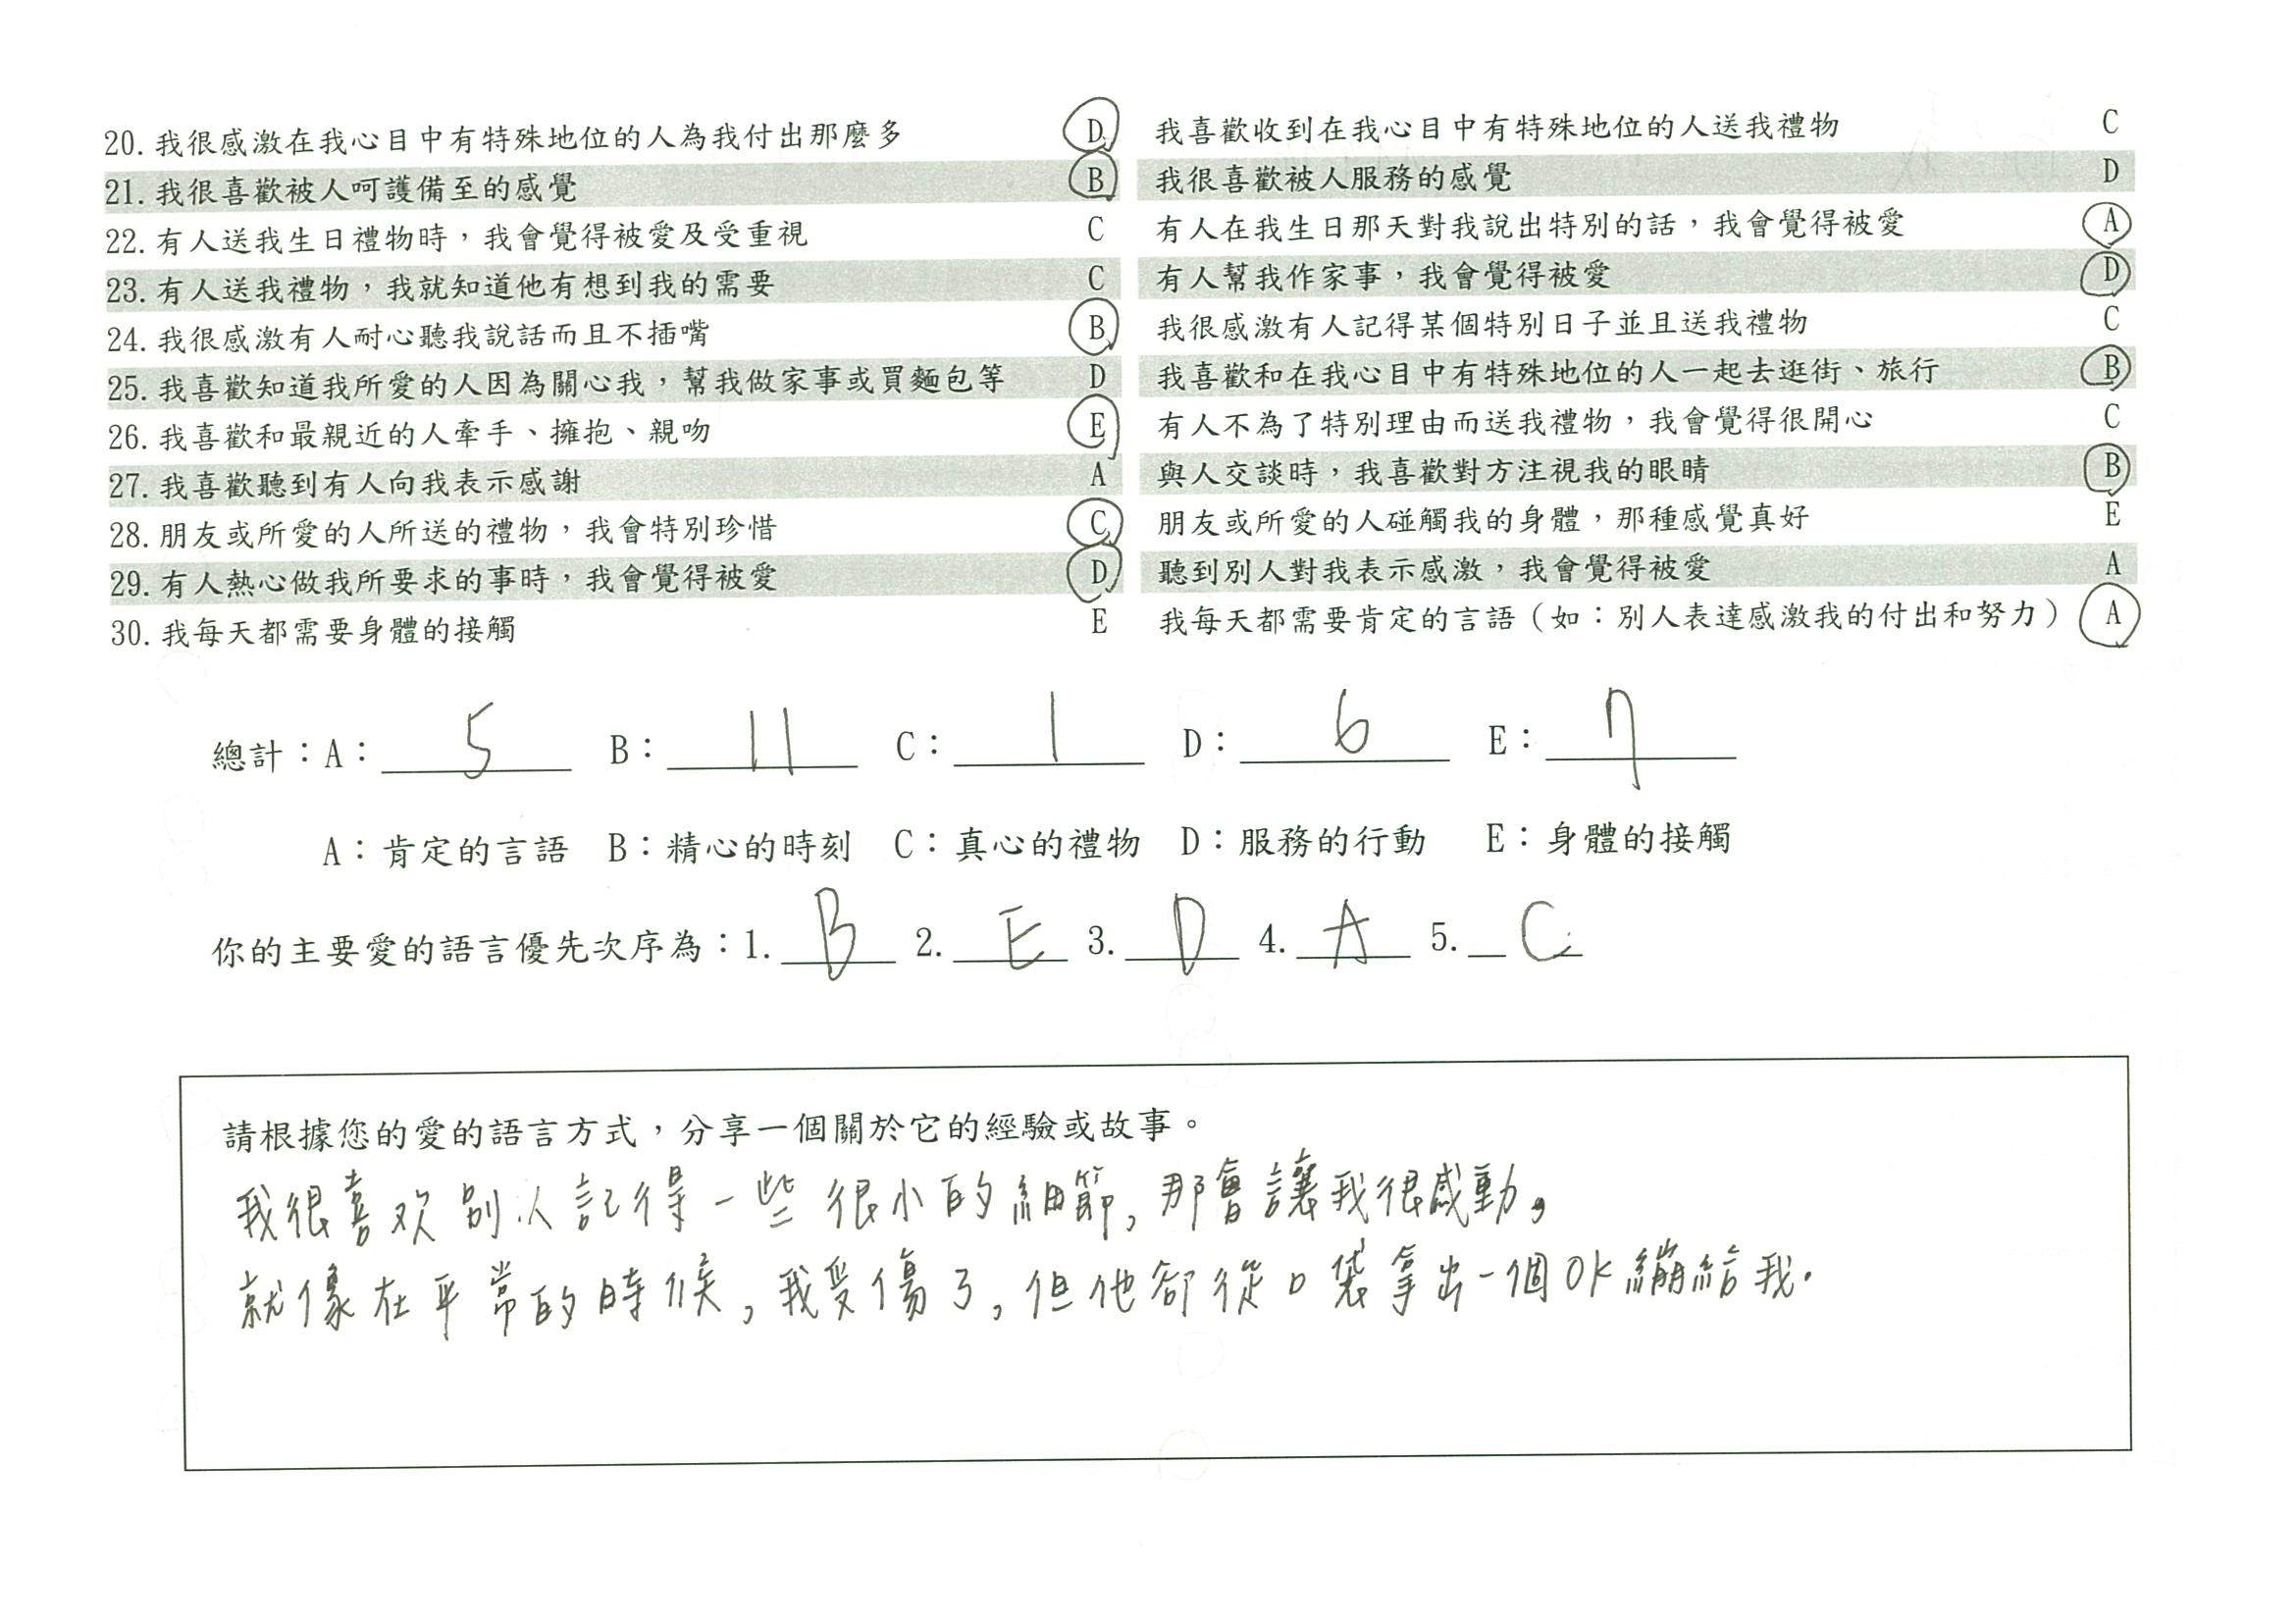 20. 我很感激在我心目中有特殊地位的人為我付出那麼多 D 我喜歡收到在我心目中有特殊地位的人送我禮物 C
21. 我很喜歡被人呵護備至的感覺 B 我很喜歡被人服務的感覺 D
22. 有人送我生日禮物時，我會覺得被愛及受重視 C 有人在我生日那天對我說出特別的話，我會覺得被愛 A
23. 有人送我禮物，我就知道他有想到我的需要 C 有人幫我作家事，我會覺得被愛 D
24. 我很感激有人耐心聽我說話而且不插嘴 B 我很感激有人記得某個特別日子並且送我禮物 C
25. 我喜歡知道我所愛的人因為關心我，幫我做家事或買麵包等 D 我喜歡和在我心目中有特殊地位的人一起去逛街、旅行 B
26. 我喜歡和最親近的人牽手、擁抱、親吻 E 有人不為了特別理由而送我禮物，我會覺得很開心 C
27. 我喜歡聽到有人向我表示感謝 A 與人交談時，我喜歡對方注視我的眼睛 B
28. 朋友或所愛的人所送的禮物，我會特別珍惜 C 朋友或所愛的人碰觸我的身體，那種感覺真好 E
29. 有人熱心做我所要求的事時，我會覺得被愛 D 聽到別人對我表示感激，我會覺得被愛 A
30. 我每天都需要身體的接觸 E 我每天都需要肯定的言語（如：別人表達感激我的付出和努力） A
總計：A：5 B：11 C：1 D：6 E：7
A：肯定的言語 B：精心的時刻 C：真心的禮物 D：服務的行動 E：身體的接觸
你的主要愛的語言優先次序為：1. B 2. E 3. D 4. A 5. C
請根據您的愛的語言方式，分享一個關於它的經驗或故事。
我很喜欢別人記得一些很小的細節，那會讓我很感動。
就像在平常的時候，我受傷了，但他卻從口袋拿出一個OK繃給我.